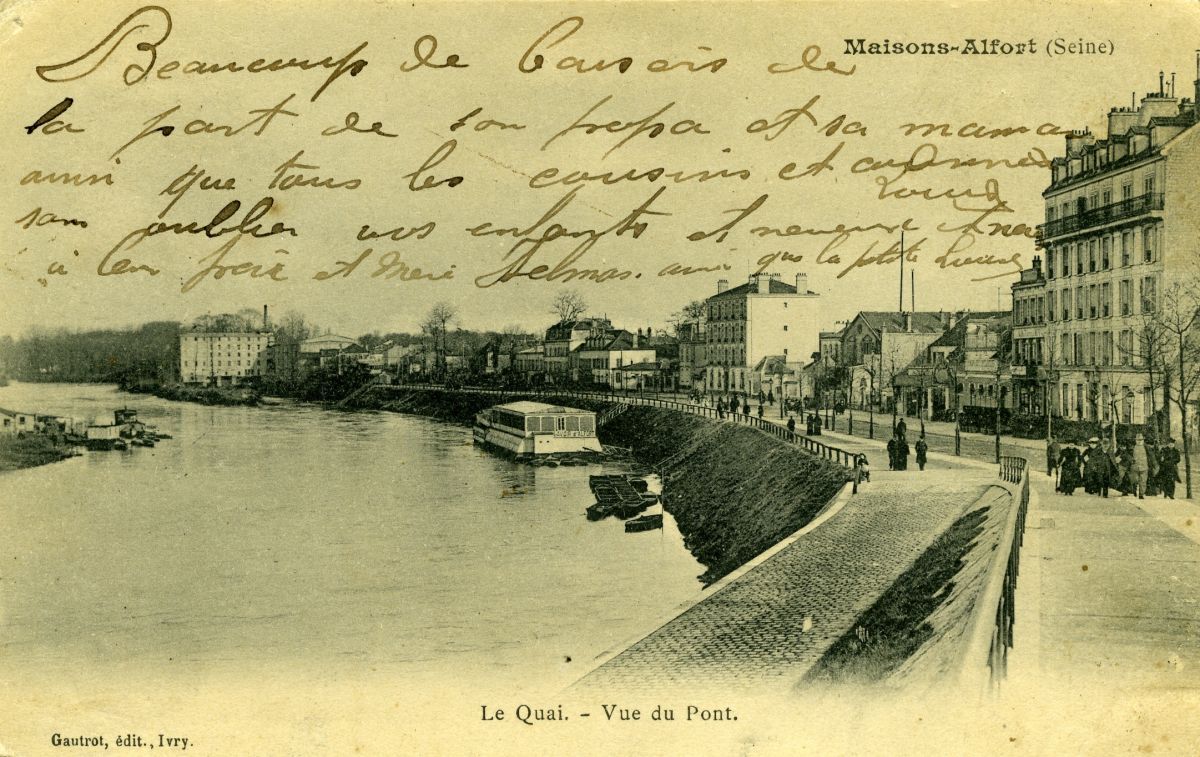 Maisons-Alfort (Seine)
Beaucoup de baisers de
la part de son propa et sa maman
ainsi que tous les cousins et cousines
sans oublier vos enfants et neveux et
à leur et Delmas. ainsi que la petite
Le Quai. - Vue du Pont.
Gautrot, édit., Ivry.